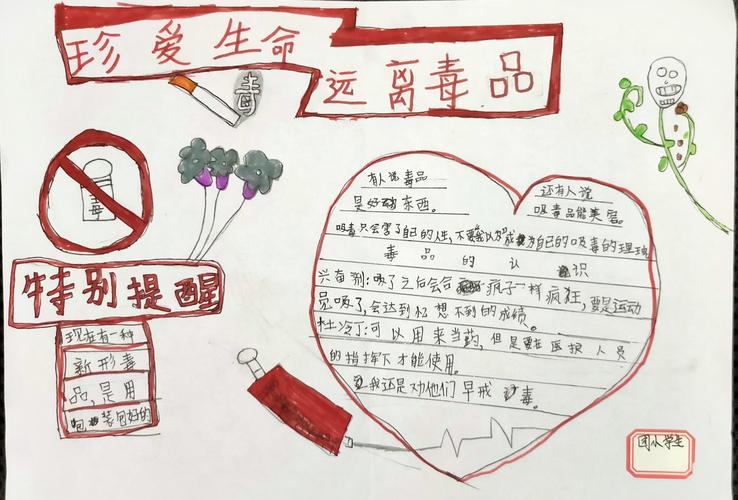 珍爱生命
远离毒品
毒
毒
特别提醒
现在有一种
新形毒
品,是用
包装包好的
有人说毒品
是好东西。
还有人说
吸毒品能美容。
吸毒只会害了自己的人生,不要以为成为自己的吸毒的理
毒品的认识
兴奋剂:吸了之后会合疯子一样疯狂,要是运动
员吸了,会达到松想不到的成绩。
杜冷丁:可以用来当药,但是要在医护人员
的指挥下才能使用。
我还是劝他们早戒毒。
团小学生